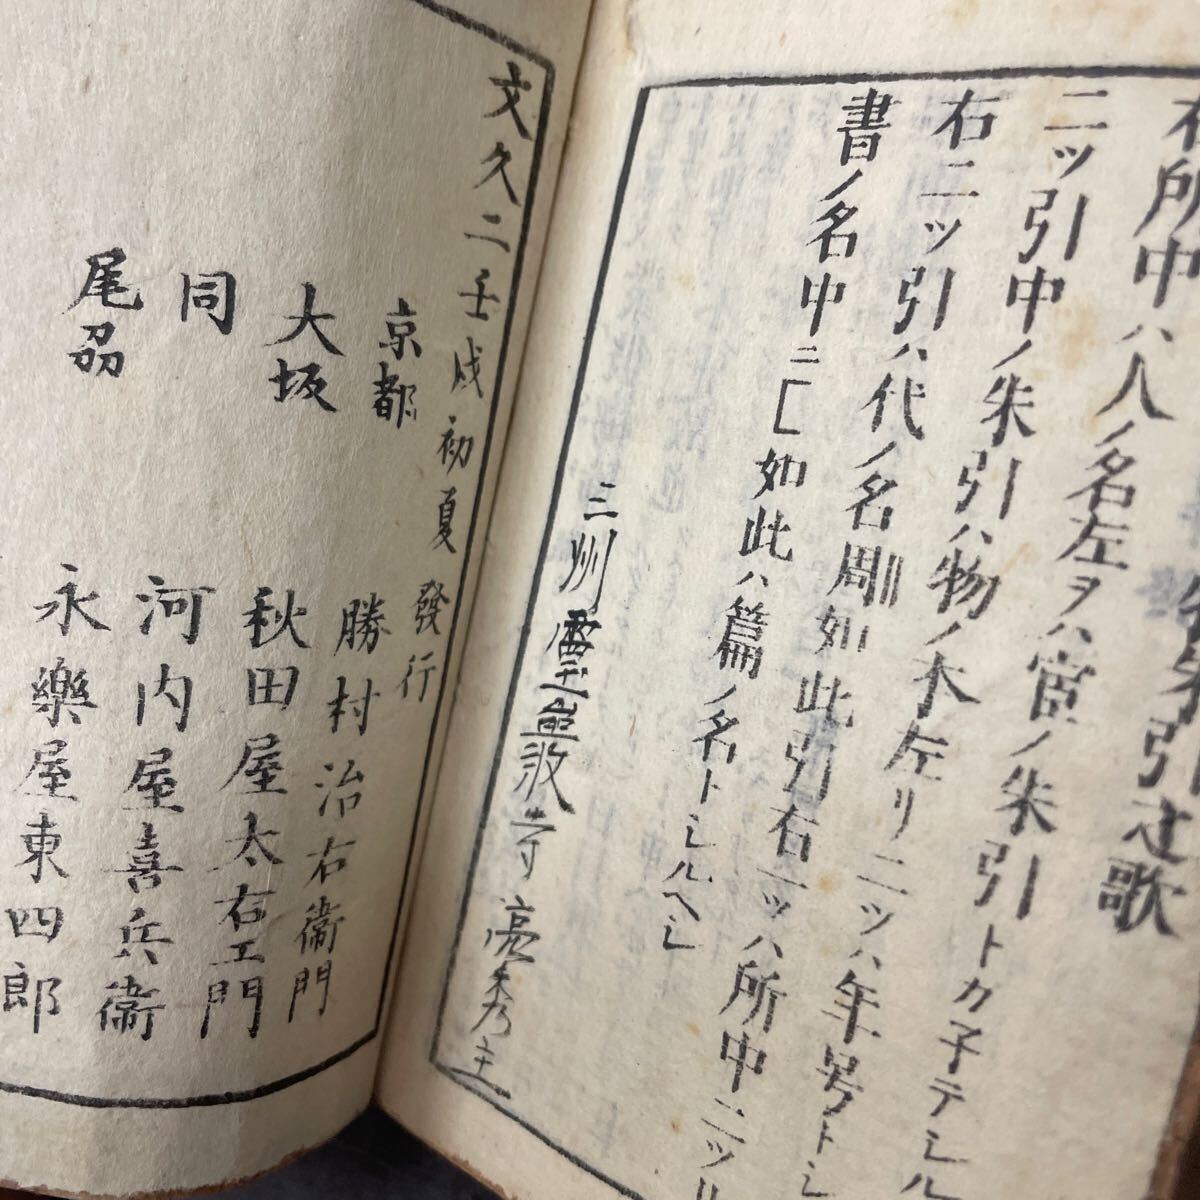 朱引之歌
右所中ハ人ノ名左ヲハ官ノ朱引トク子テシル
二ツ引中ノ朱引ハ物ノ本左リ二ツハ年号トシ
右二ツ引ハ代ノ名
如此引右一ツハ所中二ツハ
書ノ名中ニ
如此ハ篇ノ名トシルヘシ
三州
寺
主
文久二壬戌初夏發行
京都 勝村治右衛門
大坂 秋田屋太右エ門
同 河内屋喜兵衛
尾刕 永樂屋東四郎